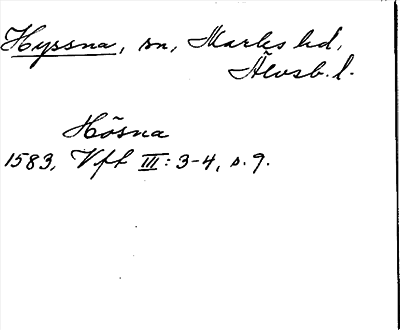 Hyssna, sn, Marks hd,
Älvsb. l.
Hösna
1583, Vft III: 3-4, s. 9.